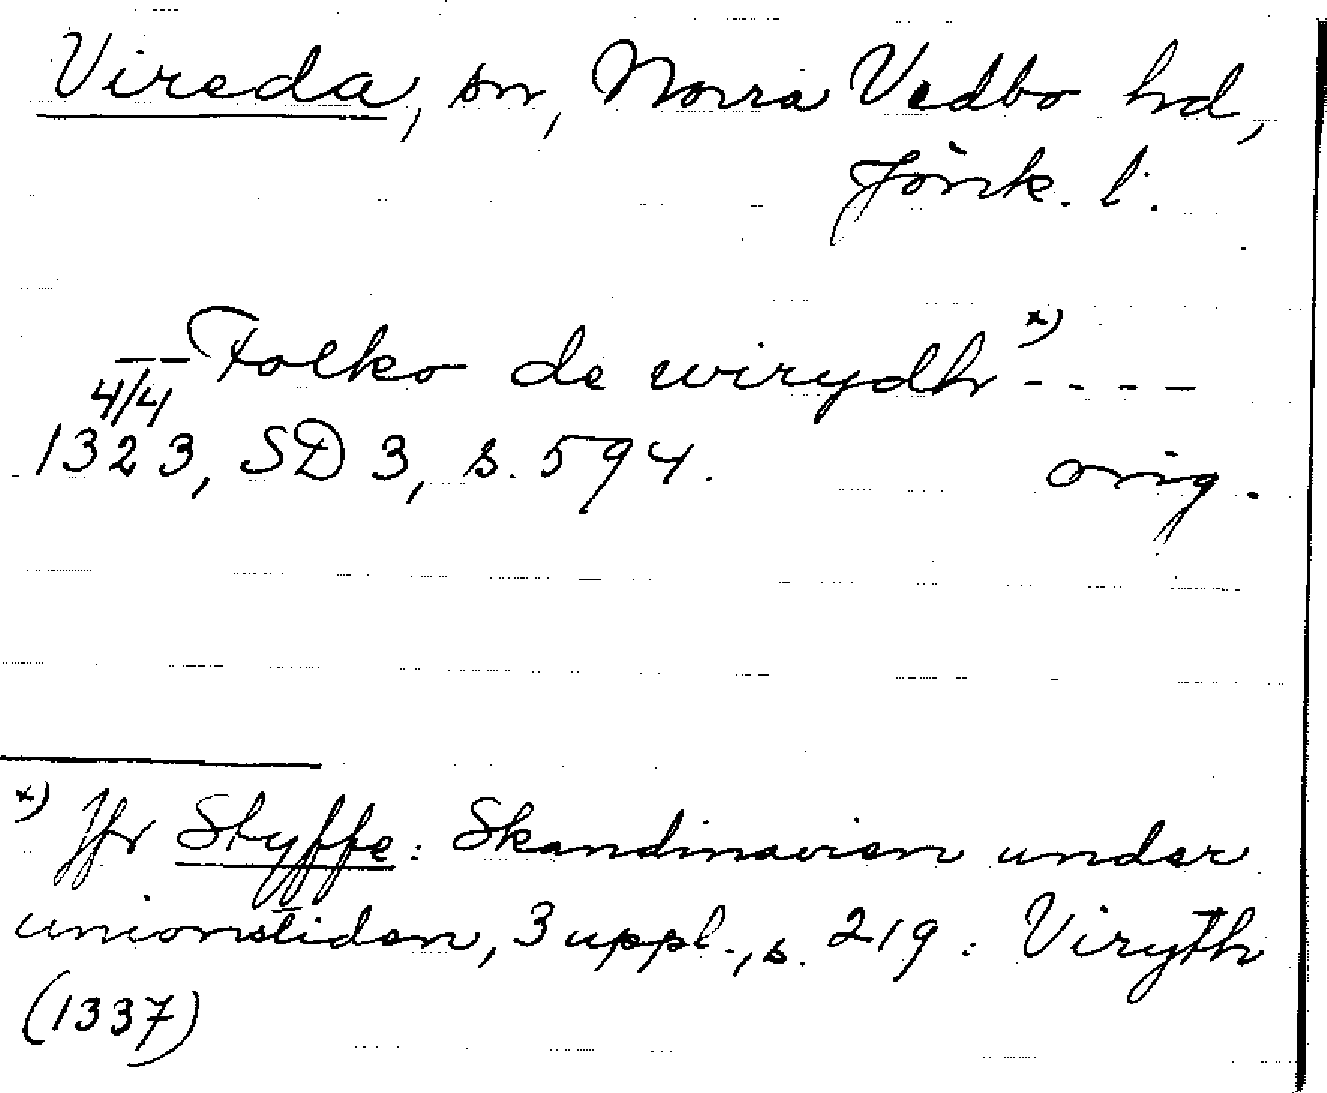 Vireda, sn, Norra Vedbo hd,
Jönk. l.
— — Folko de wirydh x) - - - -
4/4
1323, SD 3, s. 594. orig.
x) Jfr Styffe: Skandinavien under
unionstiden, 3 uppl., s. 219: Viryth
(1337)